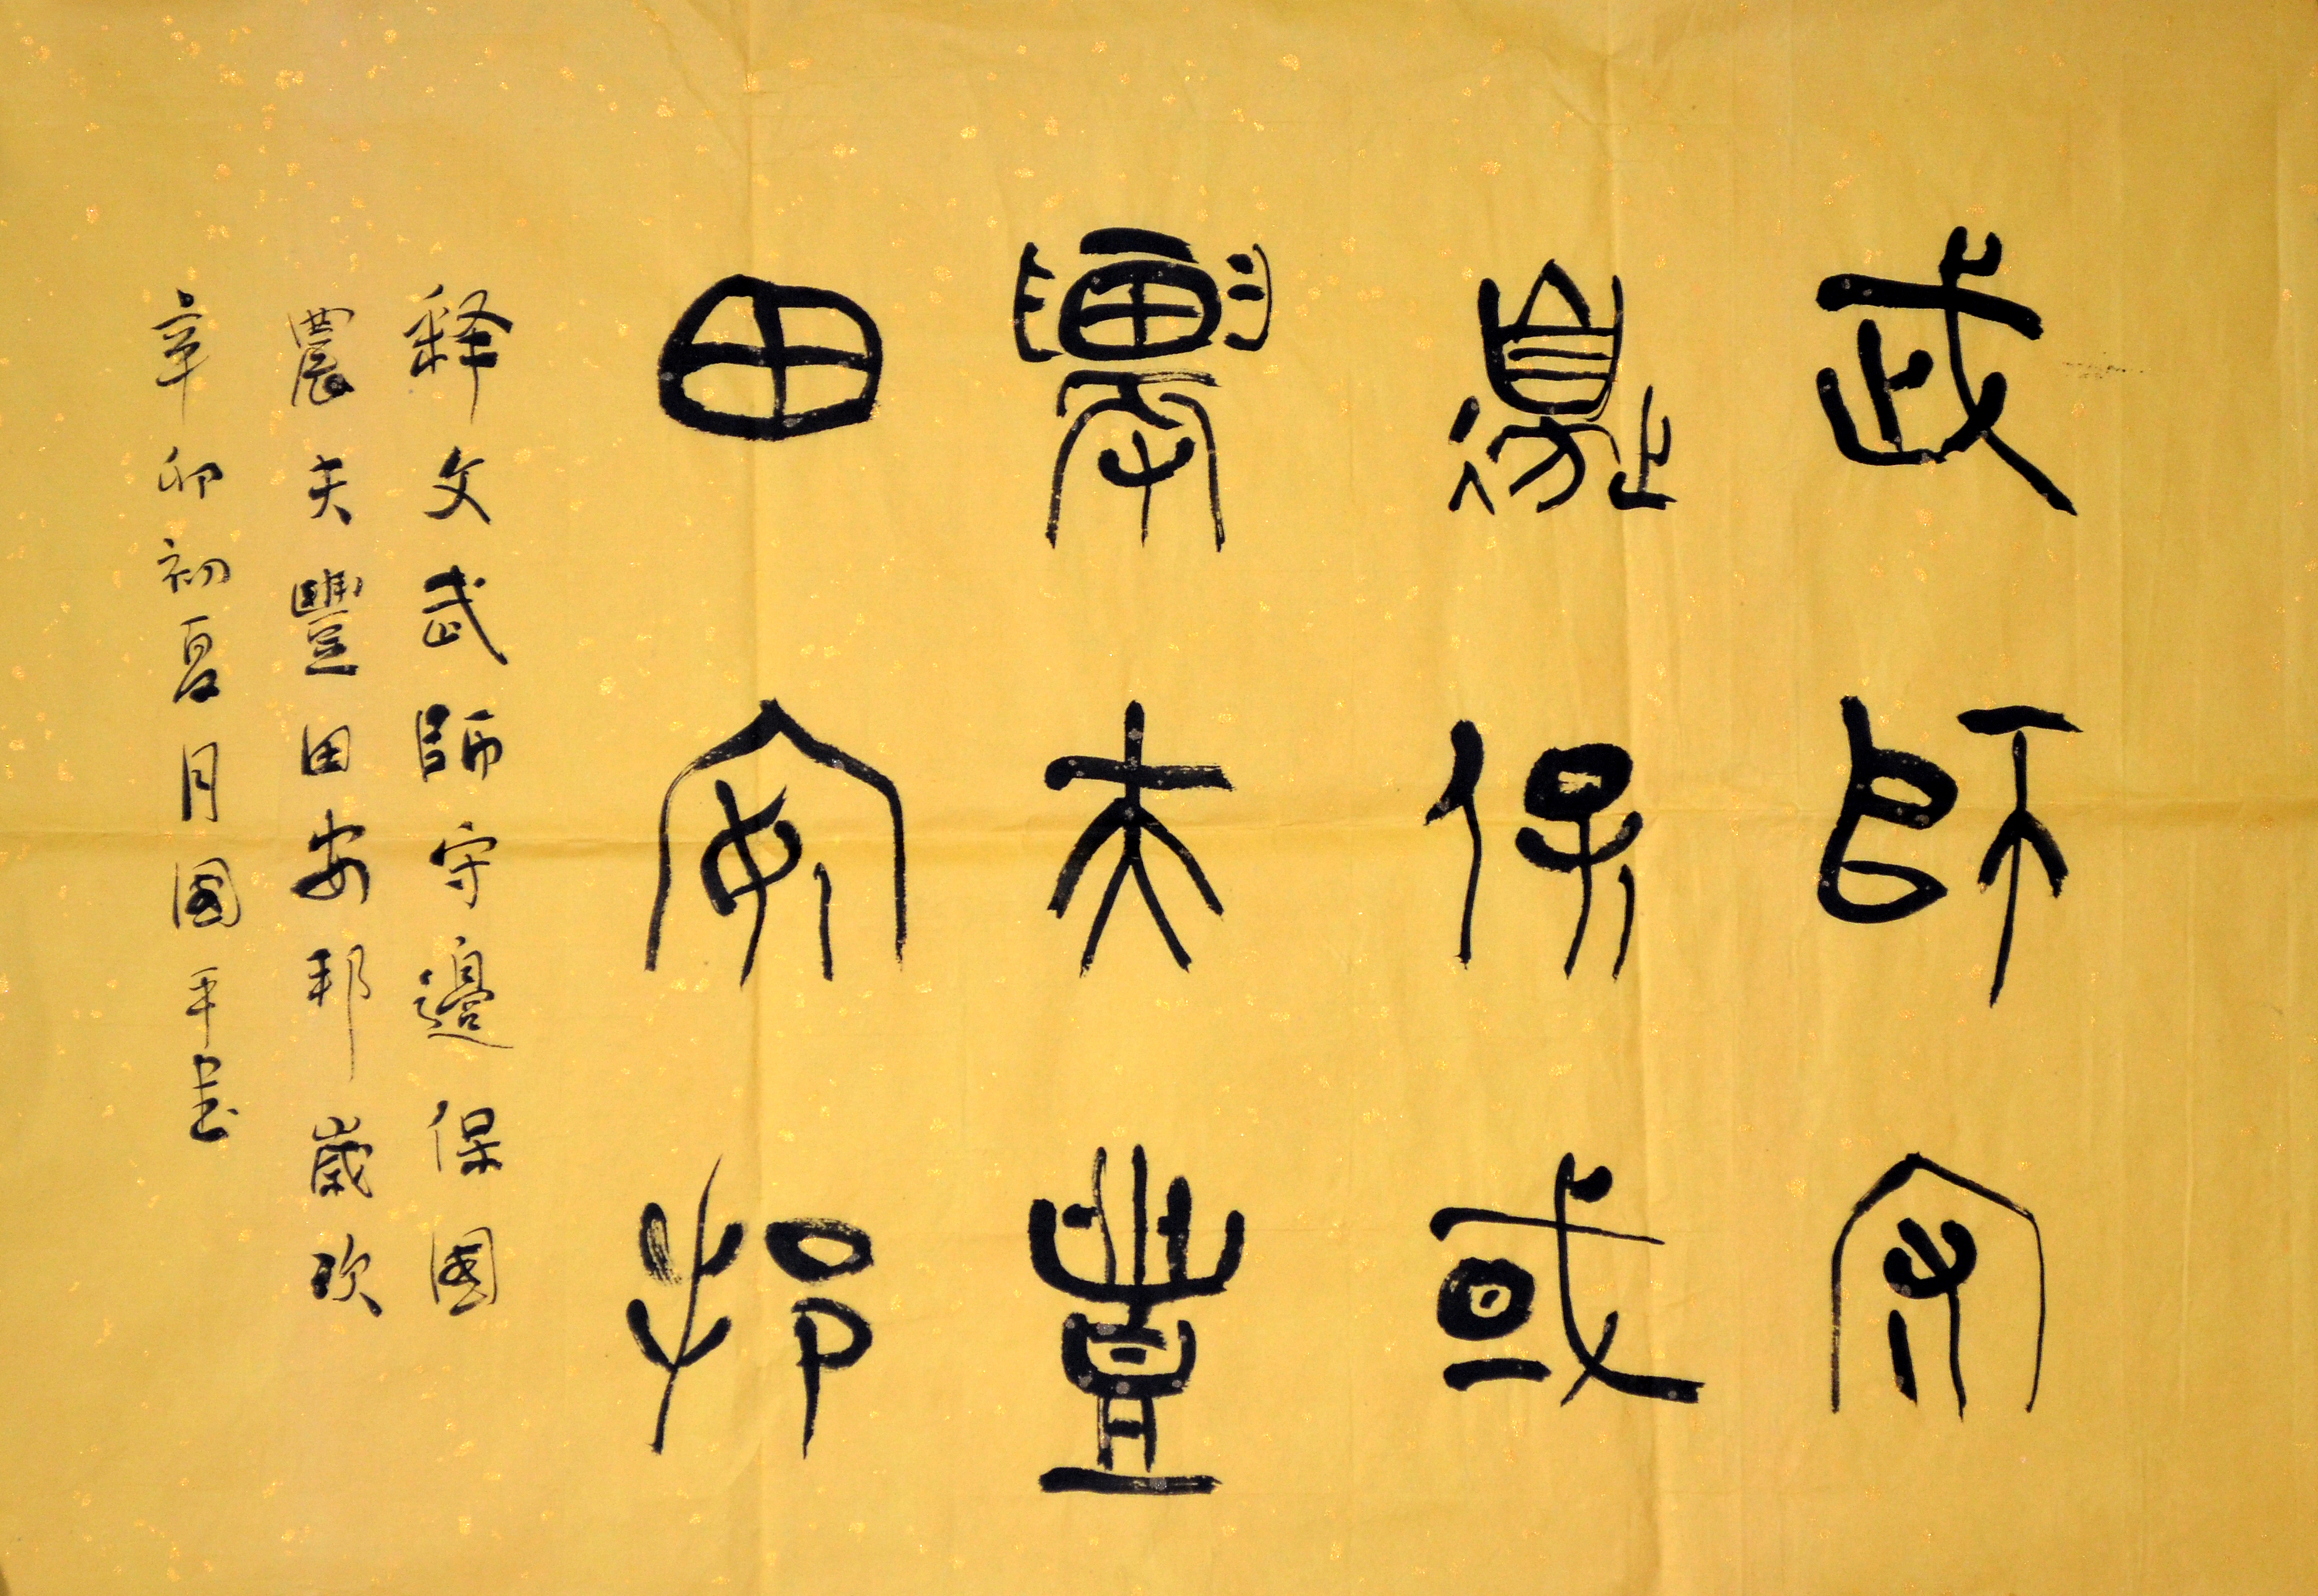 武師守
邊保國
農夫豐
田安邦
釋文武師守邊保國
農夫豐田安邦歲次
辛卯初夏月國平書